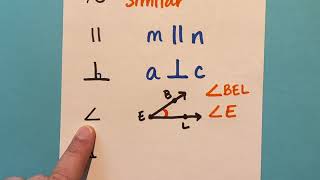 similar
∥ m ∥ n
⊥ a ⊥ c
B ∠BEL
∠ E ∠E
L